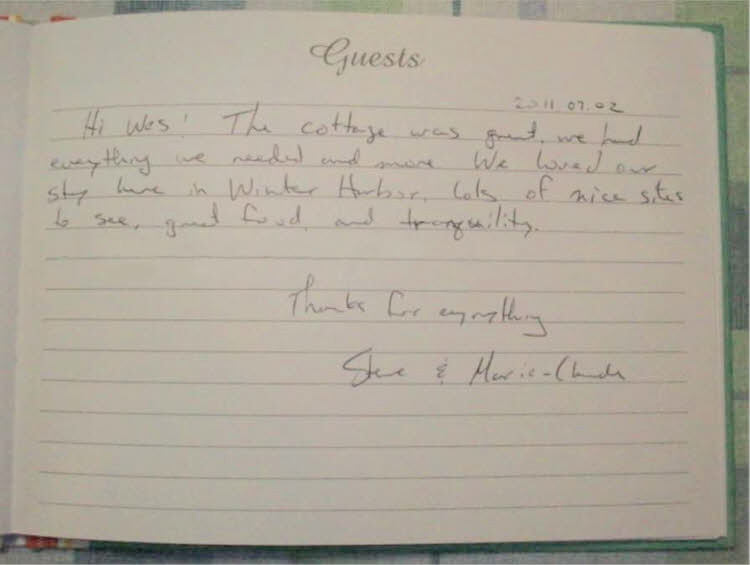 Guests
2011.07.02
Hi Wes! The cottage was great, we had
everything we needed and more We loved our
stay here in Winter Harbor, lots of nice sites
to see, great food, and tranquility.
Thanks for everything
Steve & Marie-Claude